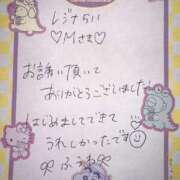 レジナちい
♡Mさま♡
お誘い頂いて
ありがとうございました!
はじめましてできて
うれしかったです☺
ふうか